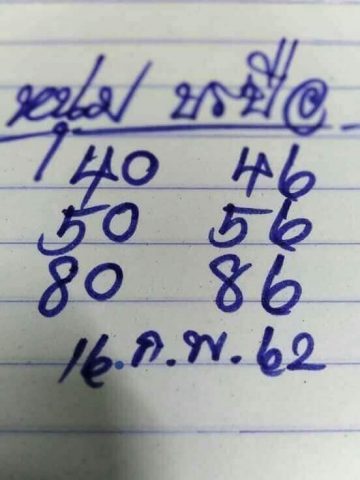 หนุ่ม
40 46
50 56
80 86
16.ก.พ.62